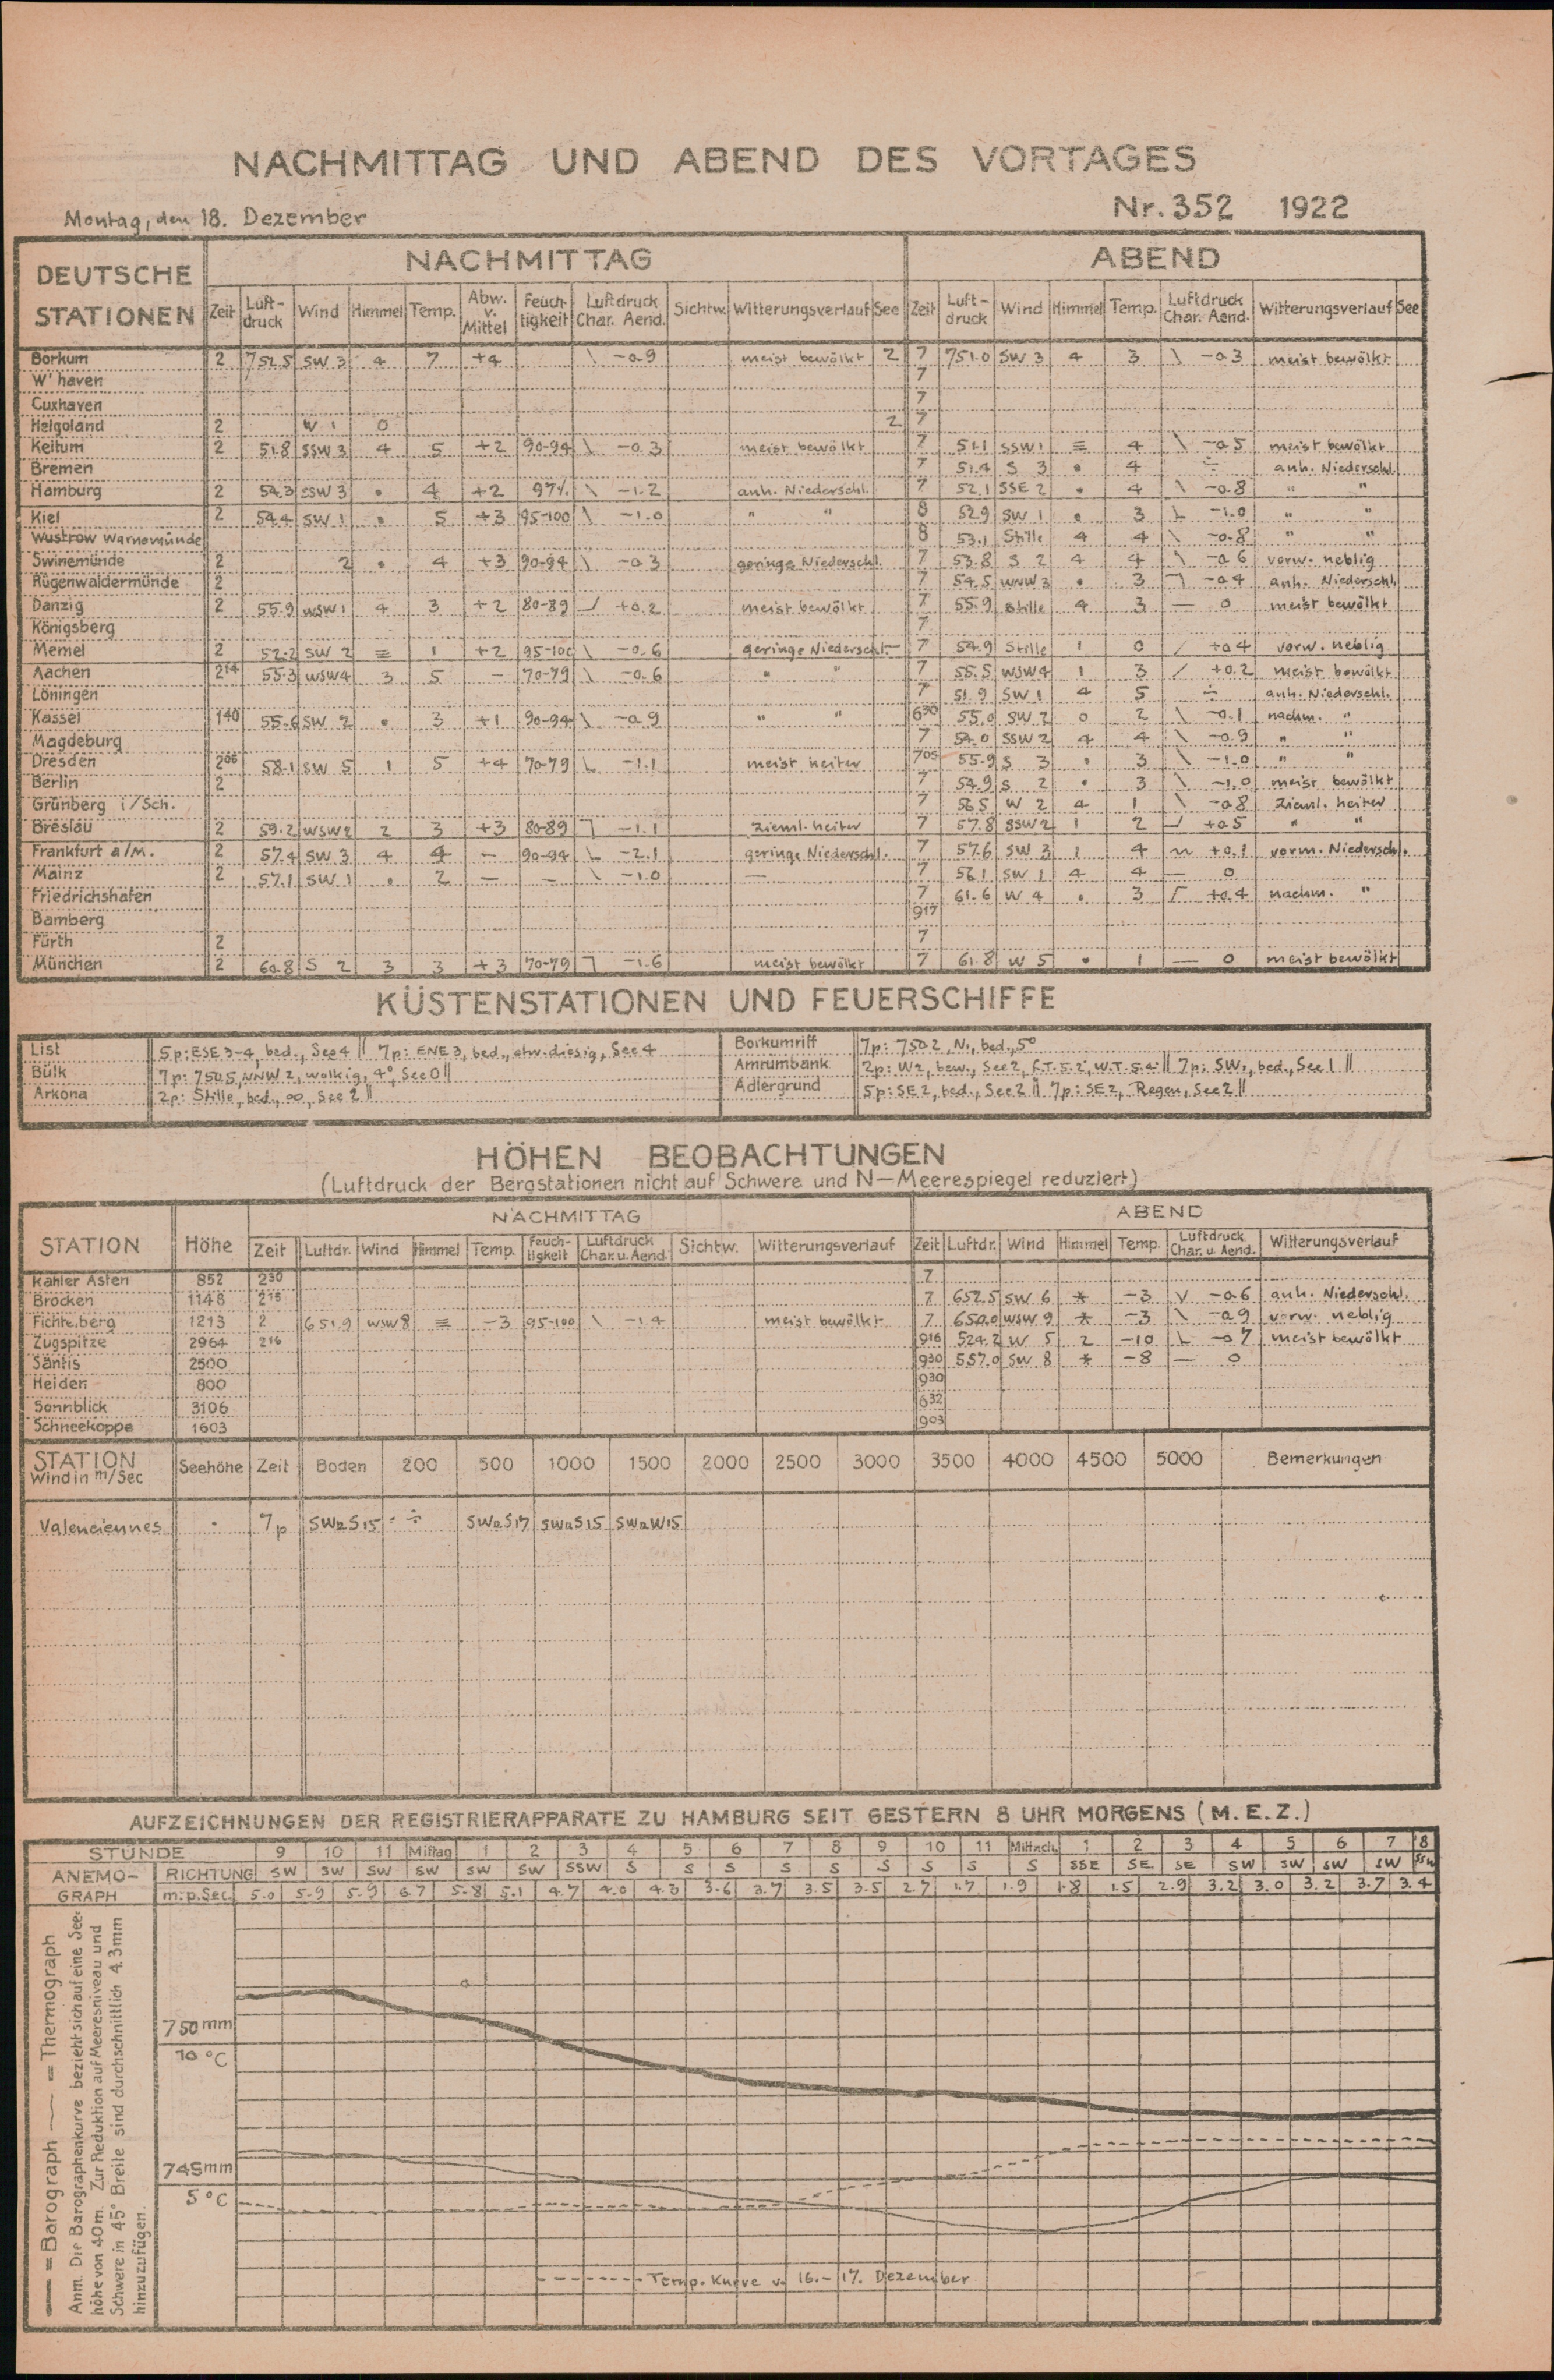 NACHMITTAG UND ABEND DES VORTAGES
Montag, den 18. Dezember Nr. 352 1922
DEUTSCHE STATIONEN NACHMITTAG ABEND
Zeit Luft-druck Wind Himmel Temp. Abw. v. Mittel Feuch-tigkeit Luftdruck Char. Aend. Sichtw. Witterungsverlauf See Zeit Luft-druck Wind Himmel Temp. Luftdruck Char. Aend. Witterungsverlauf See
Borkum 2 752.5 SW 3 4 7 +4 \ -0.9 meist bewölkt 2 7 751.0 SW 3 4 3 \ -0.3 meist bewölkt
W'haven 7
Cuxhaven 7
Helgoland 2 W 1 0 2 7
Keitum 2 51.8 SSW 3 4 5 +2 90-94 \ -0.3 meist bewölkt 7 51.1 SSW 1 ≡ 4 \ -0.5 meist bewölkt
Bremen 7 51.4 S 3 • 4 ÷ anh. Niederschl.
Hamburg 2 54.3 SSW 3 • 4 +2 97% \ -1.2 anh. Niederschl. 7 52.1 SSE 2 • 4 \ -0.8 " "
Kiel 2 54.4 SW 1 • 5 +3 95-100 \ -1.0 " " 8 52.9 SW 1 • 3 -1.0 " "
Wustrow Warnemünde 8 53.1 Stille 4 4 \ -0.8 " "
Swinemünde 2 2 • 4 +3 90-94 \ -0.3 geringe Niederschl. 7 53.8 S 2 4 4 \ -0.6 vorw. neblig
Rügenwaldermünde 2 7 54.5 WNW 3 • 3 -0.4 anh. Niederschl.
Danzig 2 55.9 WSW 1 4 3 +2 80-89 +0.2 meist bewölkt 7 55.9 Stille 4 3 — 0 meist bewölkt
Königsberg 7
Memel 2 52.2 SW 2 ≡ 1 +2 95-100 \ -0.6 geringe Niederschl. 7 54.9 Stille 1 0 / +0.4 vorw. neblig
Aachen 2¹⁴ 55.3 WSW 4 3 5 — 70-79 \ -0.6 " " 7 55.5 WSW 4 1 3 / +0.2 meist bewölkt
Löningen 7 51.9 SW 1 4 5 ÷ anh. Niederschl.
Kassel 1⁴⁰ 55.6 SW 2 • 3 +1 90-94 \ -0.9 " " 6³⁰ 55.0 SW 2 0 2 \ -0.1 nachm. "
Magdeburg 7 54.0 SSW 2 4 4 \ -0.9 " "
Dresden 2⁰⁵ 58.1 SW 5 1 5 +4 70-79 -1.1 meist heiter 7⁰⁵ 55.9 S 3 • 3 \ -1.0 " "
Berlin 2 7 54.9 S 2 • 3 \ -1.0 meist bewölkt
Grünberg i/Sch. 7 56.5 W 2 4 1 \ -0.8 Zieml. heiter
Breslau 2 59.2 WSW 2 2 3 +3 80-89 -1.1 Zieml. heiter 7 57.8 SSW 2 1 2 +0.5 " "
Frankfurt a/M. 2 57.4 SW 3 4 4 — 90-94 -2.1 geringe Niederschl. 7 57.6 SW 3 1 4 +0.1 vorm. Niedersch.
Mainz 2 57.1 SW 1 • 2 — — \ -1.0 — 7 56.1 SW 1 4 4 — 0
Friedrichshafen 7 61.6 W 4 • 3 +0.4 nachm. "
Bamberg 9¹⁷
Fürth 2 7
München 2 60.8 S 2 3 3 +3 70-79 -1.6 meist bewölkt 7 61.8 W 5 • 1 — 0 meist bewölkt
KÜSTENSTATIONEN UND FEUERSCHIFFE
List 5p: ESE 3-4, bed., See 4 || 7p: ENE 3, bed., etw. diesig, See 4
Bülk 7p: 750.5, NNW 2, wolkig, 4°, See 0 ||
Arkona 2p: Stille, bed., ∞, See 2 ||
Borkumriff 7p: 750.2, N1, bed., 5°
Amrumbank 2p: W2, bew., See 2, 7p: SW1, bed., See 1 ||
Adlergrund 5p: SE 2, bed., See 2 || 7p: SE 2, Regen, See 2 ||
HÖHEN BEOBACHTUNGEN
(Luftdruck der Bergstationen nicht auf Schwere und N—Meerespiegel reduziert)
STATION Höhe NACHMITTAG ABEND
Zeit Luftdr. Wind Himmel Temp. Feuch-tigkeit Luftdruck Char. u. Aend. Sichtw. Witterungsverlauf Zeit Luftdr. Wind Himmel Temp. Luftdruck Char. u. Aend. Witterungsverlauf
Kahler Asten 852 2³⁰ 7
Brocken 1148 2¹⁵ 7 652.5 SW 6 * -3 V -0.6 anh. Niederschl.
Fichtelberg 1213 2 651.9 WSW 8 ≡ -3 95-100 \ -1.4 meist bewölkt 7 650.0 WSW 9 * -3 \ -0.9 vorw. neblig
Zugspitze 2964 2¹⁶ 9¹⁶ 524.2 W 5 2 -10 -0.7 meist bewölkt
Säntis 2500 9³⁰ 557.0 SW 8 * -8 — 0
Heiden 800 9³⁰
Sonnblick 3106 6³²
Schneekoppe 1603 9⁰³
STATION Wind in m/Sec Seehöhe Zeit Boden 200 500 1000 1500 2000 2500 3000 3500 4000 4500 5000 Bemerkungen
Valenciennes • 7p SWaS 15 ÷ SWaS 17 SWaS 15 SWaW 15
AUFZEICHNUNGEN DER REGISTRIERAPPARATE ZU HAMBURG SEIT GESTERN 8 UHR MORGENS (M.E.Z.)
STUNDE 9 10 11 Mittag 1 2 3 4 5 6 7 8 9 10 11 Mittnch. 1 2 3 4 5 6 7 8
ANEMO-GRAPH RICHTUNG SW SW SW SW SW SW SSW S S S S S S S S S SSE SE SE SW SW SW SW SSW
m. p. Sec. 5.0 5.9 5.9 6.7 5.8 5.1 4.7 4.0 4.3 3.6 3.7 3.5 3.5 2.7 1.7 1.9 1.8 1.5 2.9 3.2 3.0 3.2 3.7 3.4
750 mm
10 °C
745 mm
5 °C
Temp. Kurve v. 16.- 17. Dezember
— = Barograph — = Thermograph
Anm. Die Barographenkurve bezieht sich auf eine See-
höhe von 40 m. Zur Reduktion auf Meeresniveau und
Schwere in 45° Breite sind durchschnittlich 4.3 mm
hinzuzufügen.